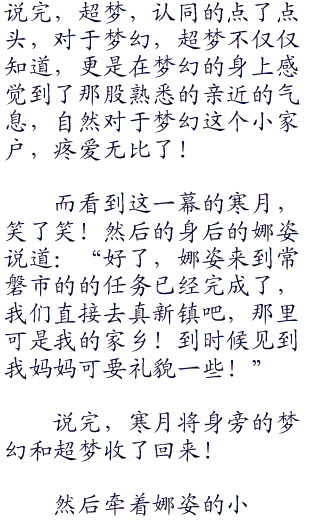 说完，超梦，认同的点了点
头，对于梦幻，超梦不仅仅
知道，更是在梦幻的身上感
觉到了那股熟悉的亲近的气
息，自然对于梦幻这个小家
户，疼爱无比了！
而看到这一幕的寒月，
笑了笑！然后的身后的娜姿
说道：“好了，娜姿来到常
磐市的的任务已经完成了，
我们直接去真新镇吧，那里
可是我的家乡！到时候见到
我妈妈可要礼貌一些！”
说完，寒月将身旁的梦
幻和超梦收了回来！
然后牵着娜姿的小